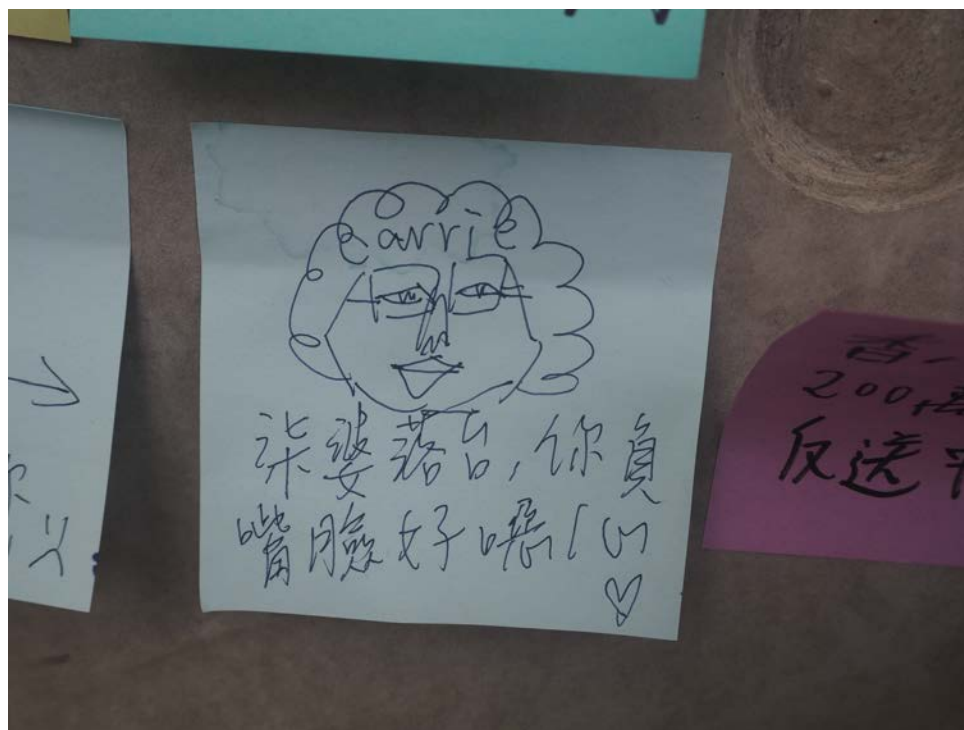 Carrie
柒婆落台，你負
嘴臉好噁心
200萬
反送中